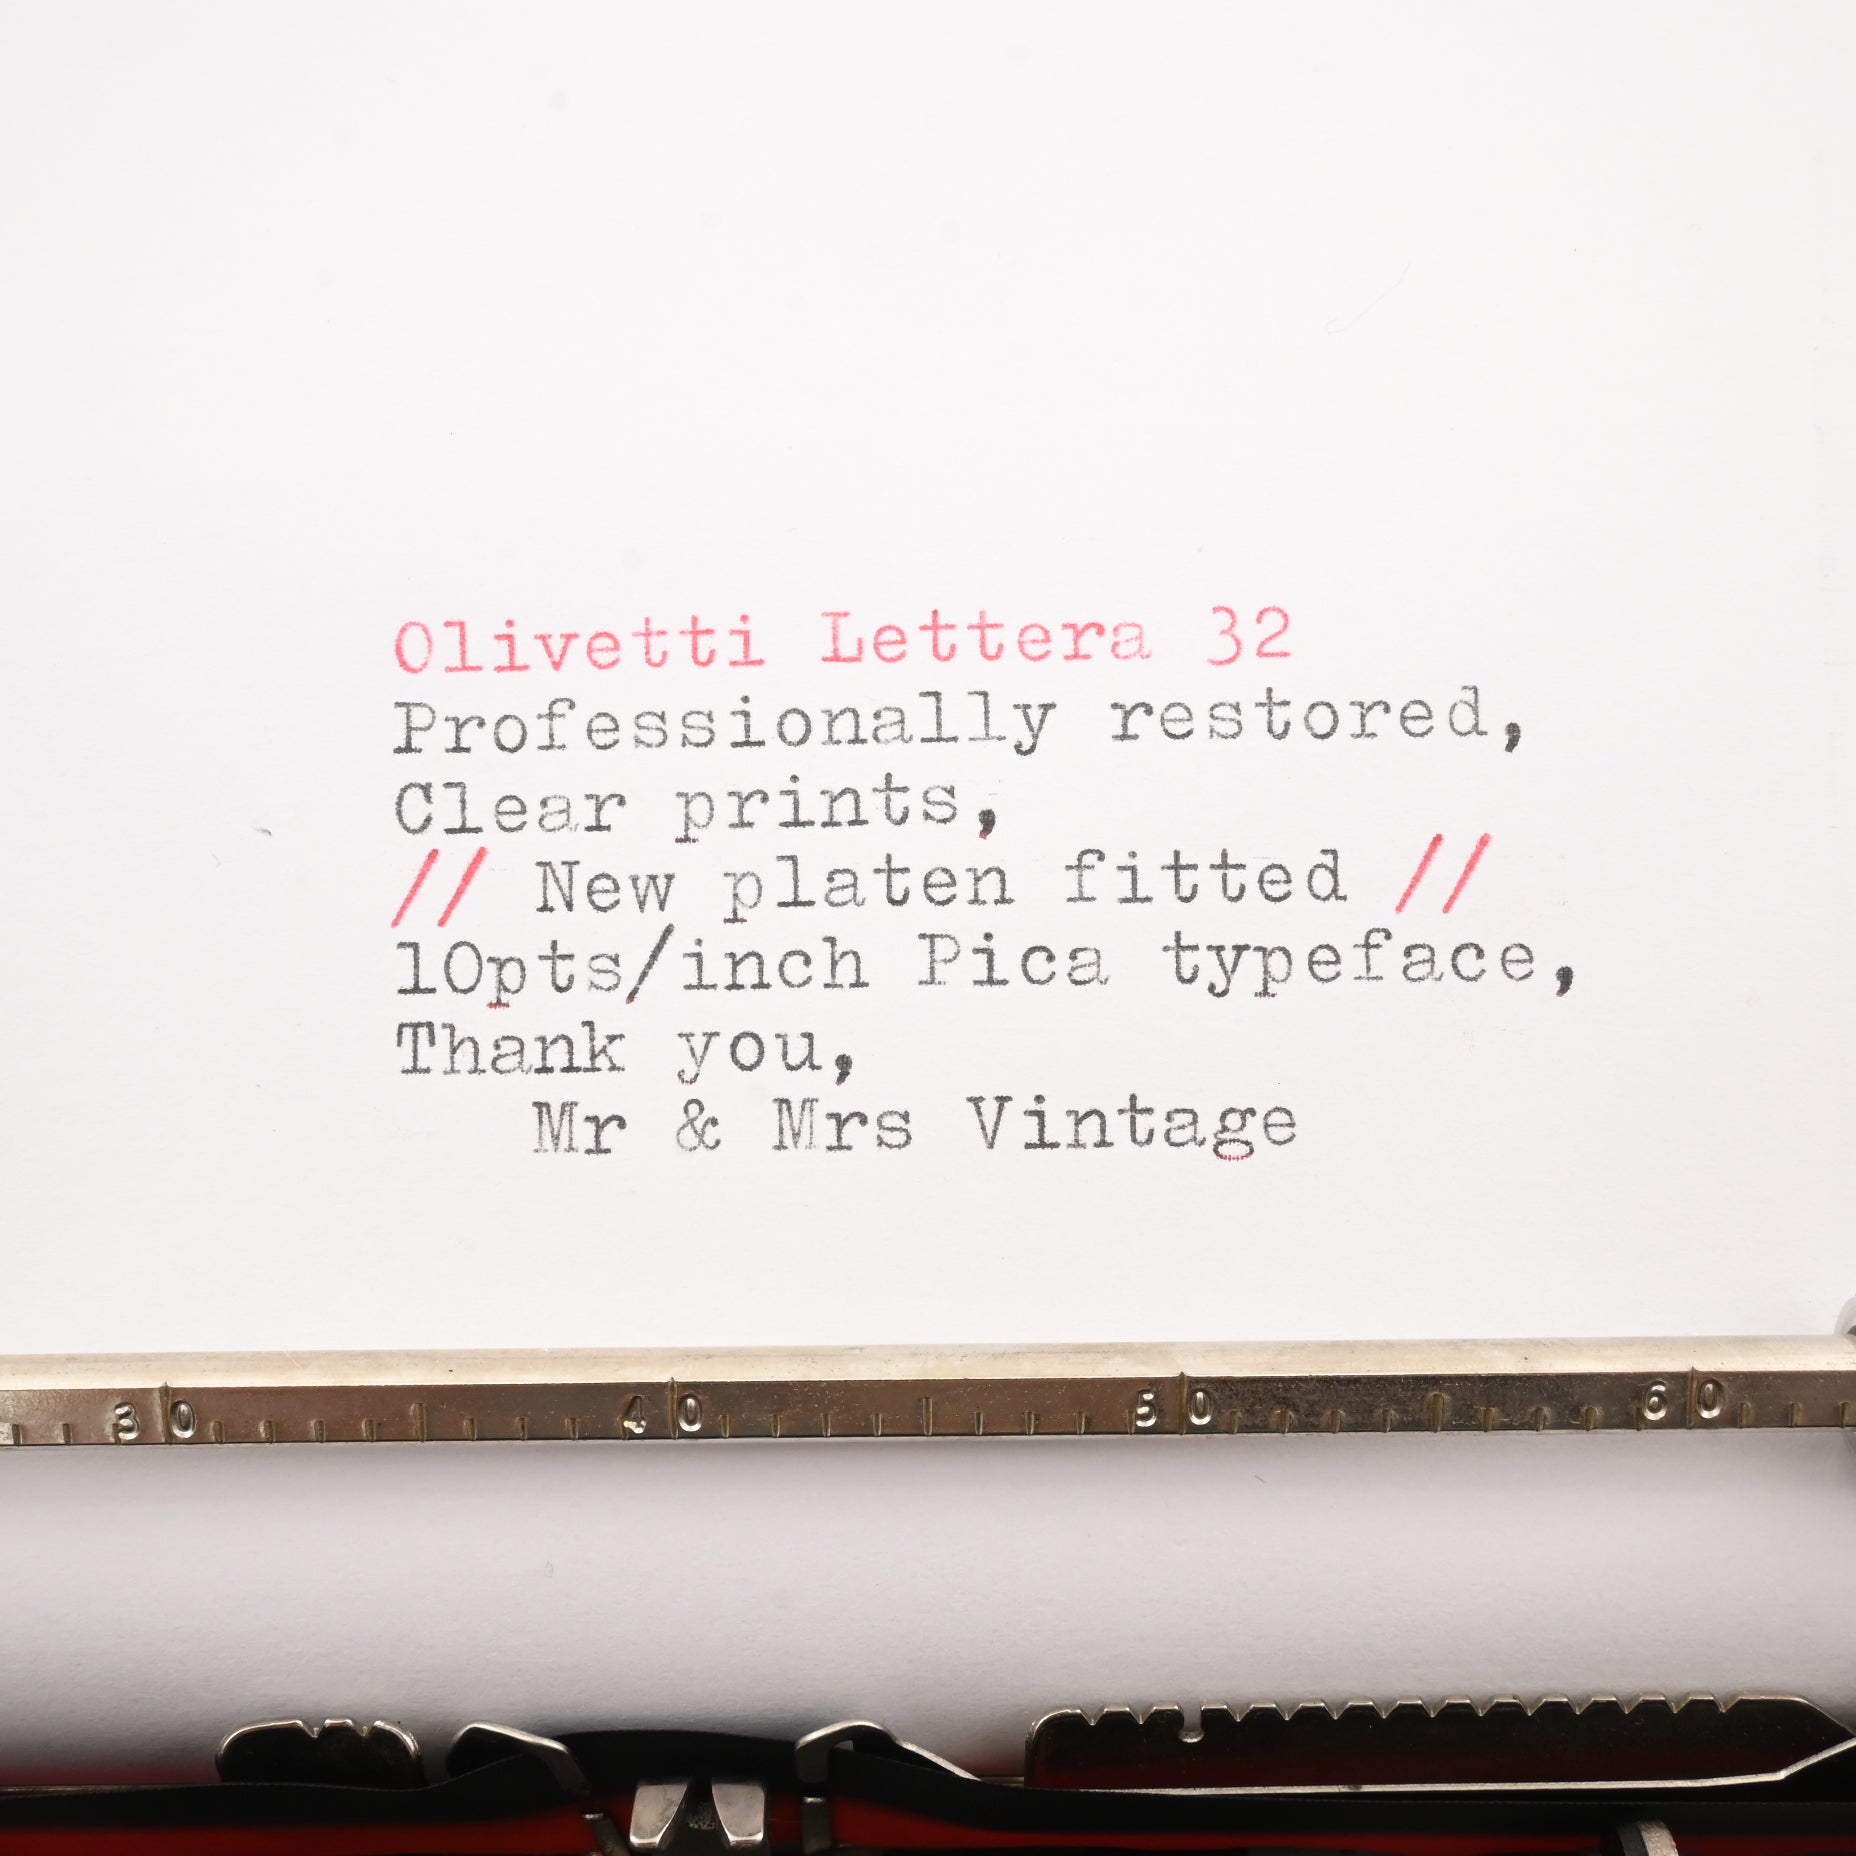 Olivetti Lettera 32
Professionally restored,
Clear prints,
// New platen fitted //
10pts/inch Pica typeface,
Thank you,
Mr & Mrs Vintage
30 40 50 60